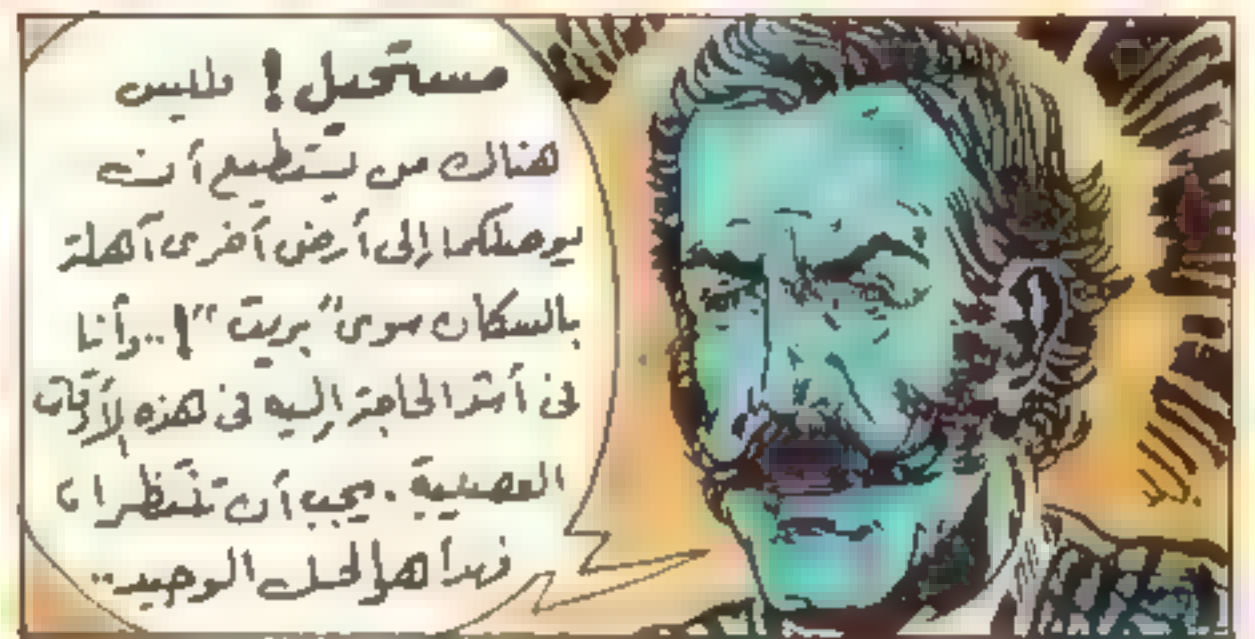 مستحيل! فليس
هناك من يستطيع أن
يوصلكما إلى أرض أخرى آهلة
بالسكان سوى "بريت"!.. وأنا
فى أشد الحاجة إليه فى هذه الأوقات
العصيبة. يجب أن تنتظران
فهذا هو الحل الوحيد..